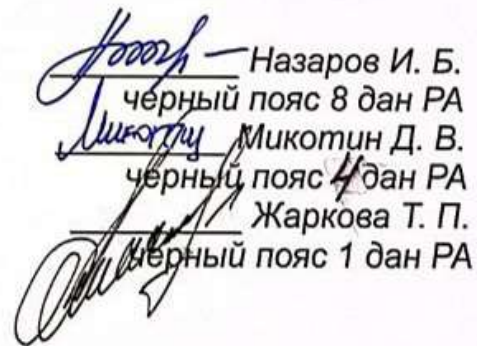 Назаров И. Б.
черный пояс 8 дан РА
Микотин Д. В.
черный пояс 4 дан РА
Жаркова Т. П.
черный пояс 1 дан РА